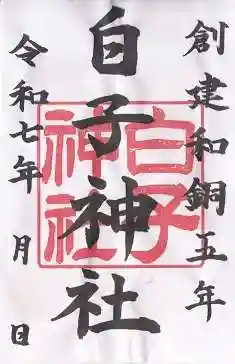 創建和銅五年
白子神社
白子神社
令和七年 月 日